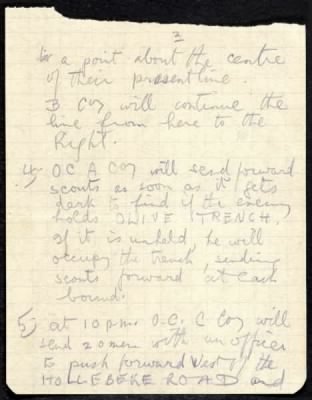 3
to a point about the centre
of their present line.
B Coy will continue the
line from here to the
Right.
4) OC A Coy will send forward
scouts as soon as it gets
dark to find if the enemy
holds OLIVE TRENCH.
If it is unheld, he will
occupy the trench, sending
scouts forward at each
bound.
5) at 10 pm. O.C. C Coy will
send 20 men with an officer
to push forward West of the
HOLLEBEKE ROAD and